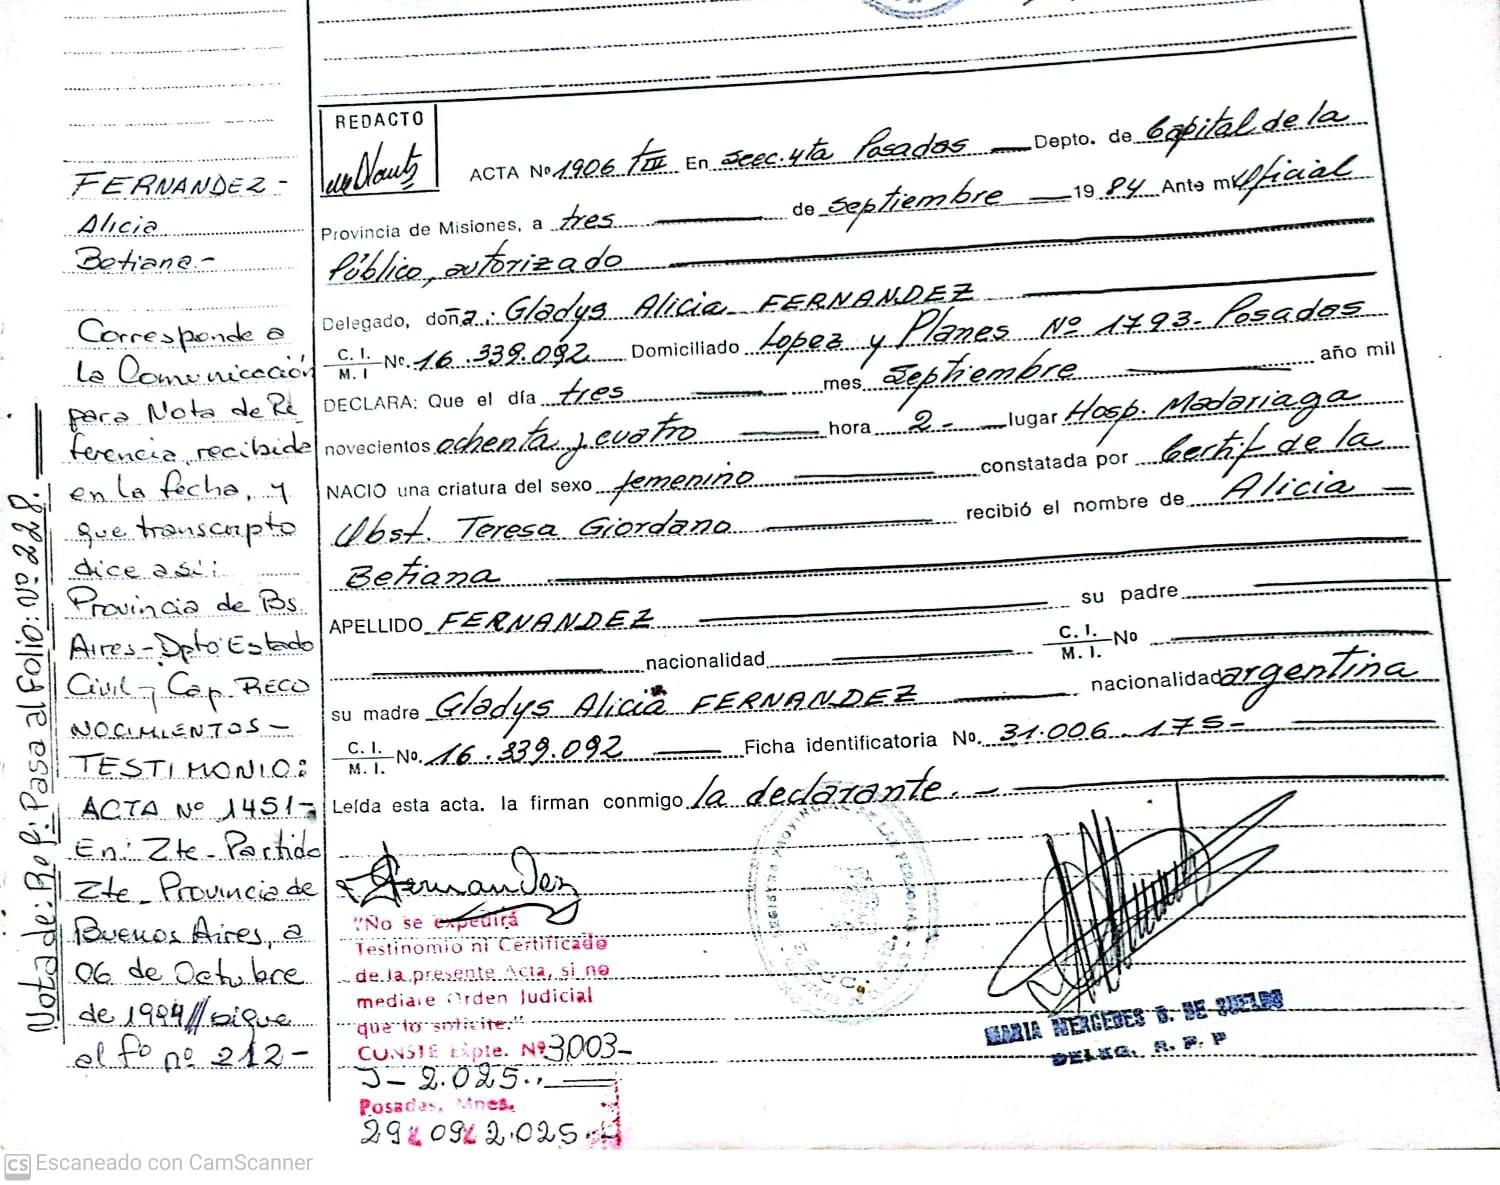 FERNANDEZ-
Alicia
Betiana.-
Corresponde a
la Comunicación
para Nota de Re
ferencia, recibida
en la fecha, y
que transcripto
dice así:
Provincia de Bs.
Aires-Dpto Estado
Civil y Cap. RECO
NOCIMIENTOS-
TESTIMONIO:
ACTA Nº 1451-
En: Zte- Partido
Zte- Provincia de
Buenos Aires, a
06 de Octubre
de 1994//sigue
al fº nº 212-
Nota de: Ref: Pasa al Folio: Nº 228.
REDACTO
ACTA Nº 1906 tIII En Secc. 4ta Posadas Depto. de Capital de la
Provincia de Misiones, a tres de septiembre 1984 Ante mi Oficial
Público, autorizado
Delegado, doña: Gladys Alicia FERNANDEZ
C. I. / M. I Nº. 16.339.092 Domiciliado Lopez y Planes Nº 1793- Posadas
DECLARA: Que el día tres mes septiembre año mil
novecientos ochenta y cuatro hora 2- lugar Hosp. Madariaga
NACIO una criatura del sexo femenino constatada por Certif de la
Obst. Teresa Giordano recibió el nombre de Alicia -
Betiana
APELLIDO FERNANDEZ su padre
nacionalidad C. I. / M. I. Nº
su madre Gladys Alicia FERNANDEZ nacionalidad argentina
C. I. / M. I. Nº. 16.339.092 Ficha identificatoria No. 31.006.175-
Leída esta acta. la firman conmigo la declarante.-
Fernandez
"No se expedirá
Testinomio ni Certificado
de la presente Acta, si no
mediare Orden Judicial
que lo solicite."
CONSTE Expte. Nº 3003-
J- 2.025.
Posadas, Mnes.
29 09 2.025.-
MARIA MERCEDES B. DE SUELDO
DELEG. R. P. P
CS Escaneado con CamScanner